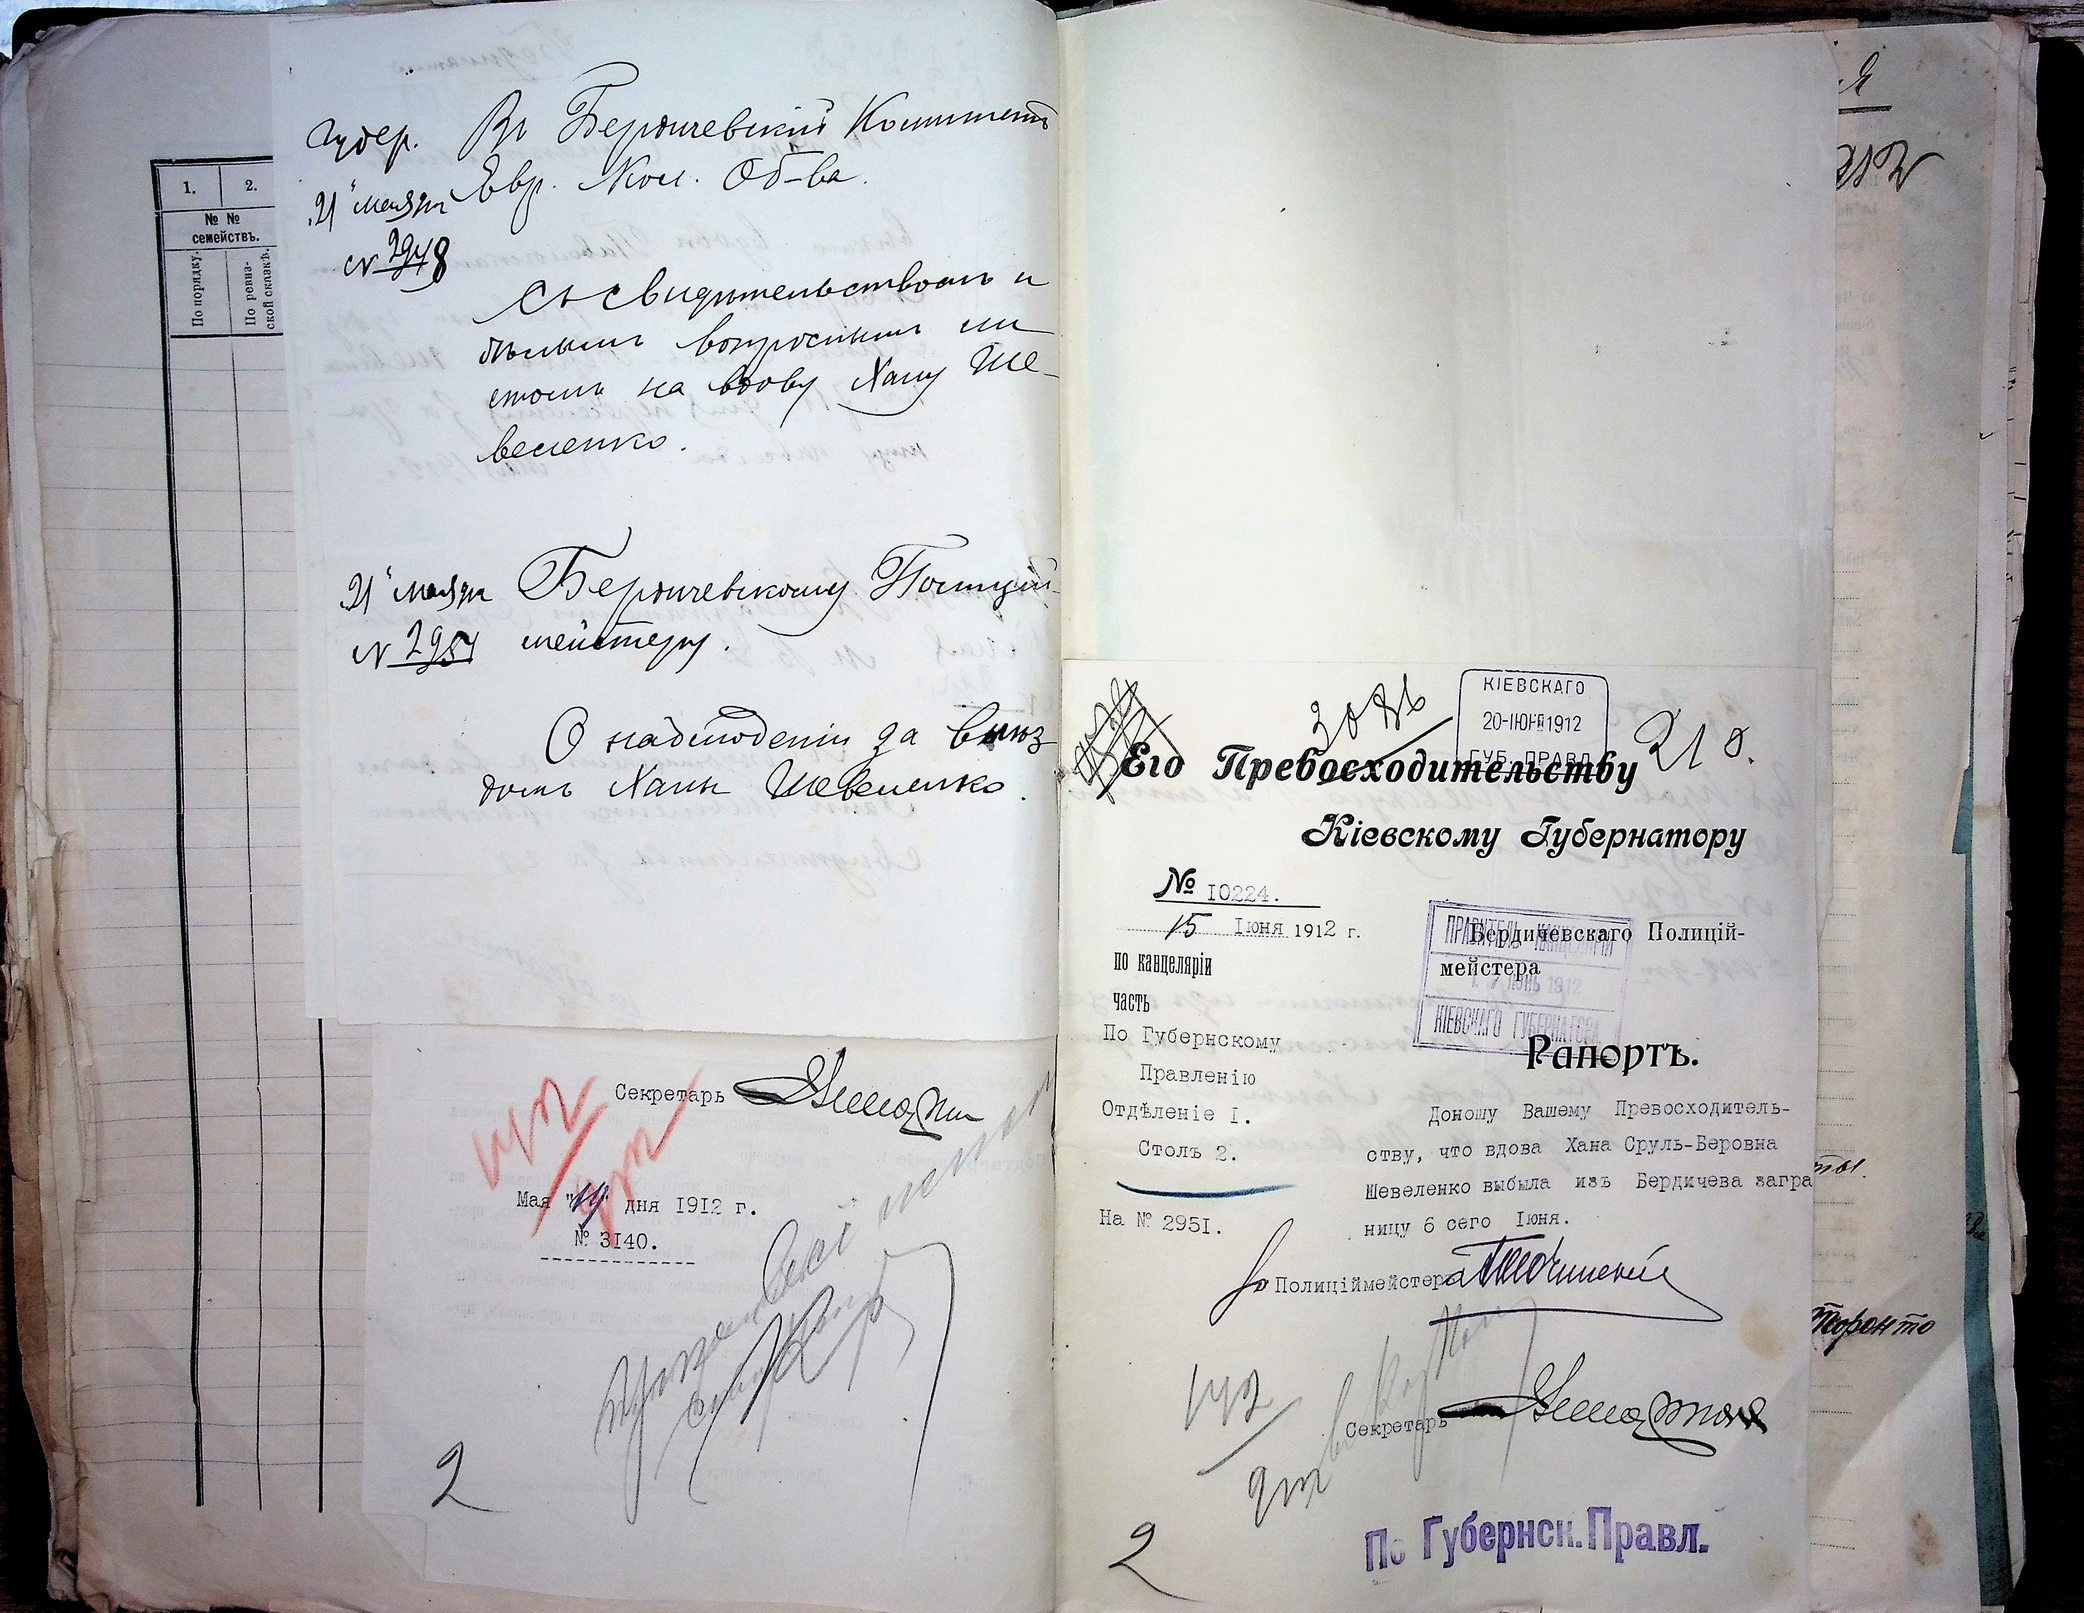 1. 2.
№ №
семействъ.
По порядку.
По ревиз-
ской сказкѣ.
Губер. Въ Бердичевскій Комитетъ
21 мая
Евр. Кол. Об-ва.
№ 2948
Съ свидѣтельствомъ и
бѣлымъ вопроснымъ ли
стомъ на вдову Хану Ше-
веленко.
21 мая Бердичевскому Полицій-
№ 2951 мейстеру.
О наблюденіи за выѣз
домъ Ханы Шевеленко.
Секретарь
Мая "19" дня 1912 г.
№ 3140.
2
КІЕВСКАГО
20-ІЮНЯ 1912
ГУБ. ПРАВЛ.
218.
Его Превосходительству
Кіевскому Губернатору
№ 10224.
15 Іюня 1912 г.
по канцеляріи
часть
По Губернскому
Правленію
Отдѣленіе I.
Столъ 2.
На № 2951.
ПРАВИТЕЛЬ КАНЦЕЛЯРІИ
ІЮНЬ 1912
КІЕВСКАГО ГУБЕРНАТОРА
Бердичевскаго Полицій-
мейстера
Рапортъ.
Доношу Вашему Превосходитель-
ству, что вдова Хана Сруль-Беровна
Шевеленко выбыла изъ Бердичева загра
ницу 6 сего Іюня.
Полиціймейстера
Секретарь
2
По Губернск.Правл.
Торонто